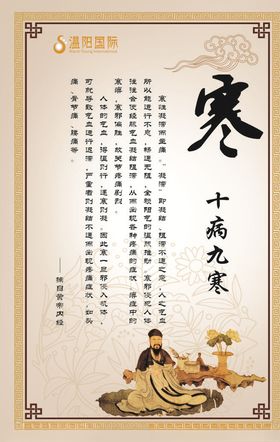 温阳国际
寒
十病九寒
寒性凝滞而主痛。“凝滞”即凝结、阻滞不通之意。人之气血
所以能运行不息，畅通无阻，全赖阳气的温煦推动，寒邪侵犯人体
往往会使经脉气血凝结阻滞，从而出现各种疼痛的症状。痹症中的
寒痹，寒邪偏胜，故关节疼痛剧烈。
人体的气血，得温则行，遇寒则凝。因此寒一旦邪侵入机体，
可就导致气血运行迟滞，严重者则凝结不通而出现疼痛的症状，如头
痛、骨节痛、腰痛等。
——摘自黄帝内经